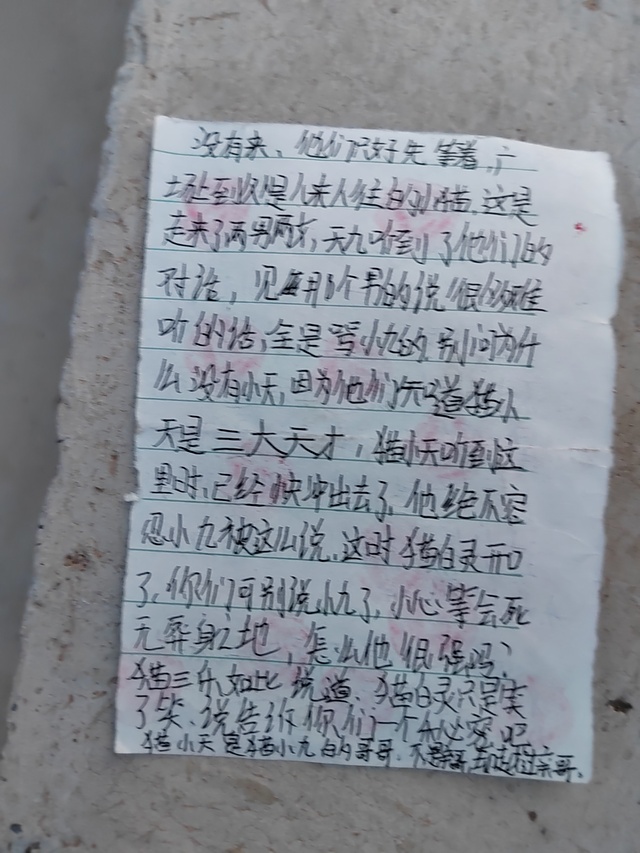 没有来、他们只好先等着,广
场上到处是人来人往的小猫.这是
走来了两男两女,天九听到了他们的
对话,见那个男的说很多难
听的话,全是骂小九的.别问为什
么没有小天,因为他们知道猫小
天是三大天才,猫小天听到这
里时,已经快冲出去了,他绝不容
忍小九被这么说.这时猫白灵开口
了,你们可别说小九了,小心等会死
无葬身之地,怎么他很强吗?
猫三九如此说道、猫白灵只是笑
了笑、说告诉你们一个秘密吧
猫小天是猫小九的哥哥.不是亲哥 哥.